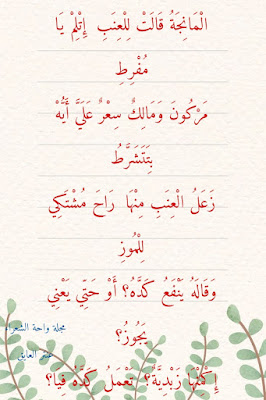 الْمَانِجَةُ قَالَتْ لِلْعِنَبِ إِتْلِمْ يَا
مُفْرِطِ
مَرْكُونَ وَمَالِكٌ سِعْرٌ عَلَيَّ أَيُّهْ
بِتَتَشَرَّطُ
زَعَلُ الْعِنَبِ مِنْهَا رَاحَ مُشْتَكِي
لِلْمُوزِ
وَقَالَهُ يَنْفَعُ كَدَّهْ؟ أَوْ حَتِّي يَعْنِي
يَجُوزُ؟
إِكْمِنْهَا زَبْدِيَّةٌ؟ تَعْمَلُ كَدَّهْ فِيَا؟
مجلة واحة الشعراء
عمر العايق